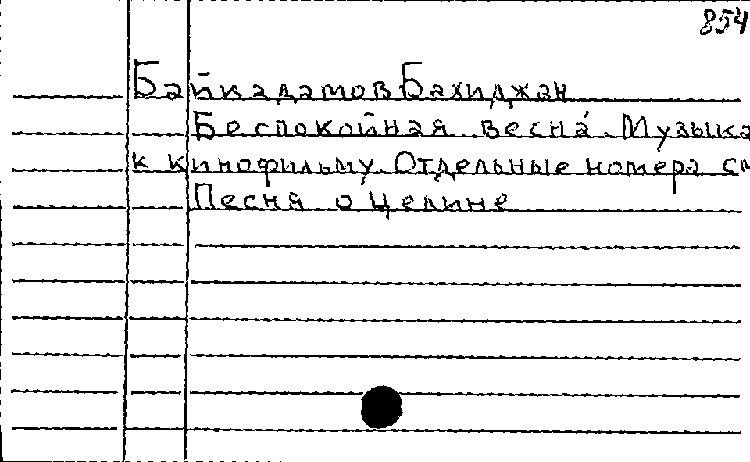 854
Байкадамов Бахиджан
Беспокойная весна. Музыка
к кинофильму. Отдельные номера см
Песня о целине